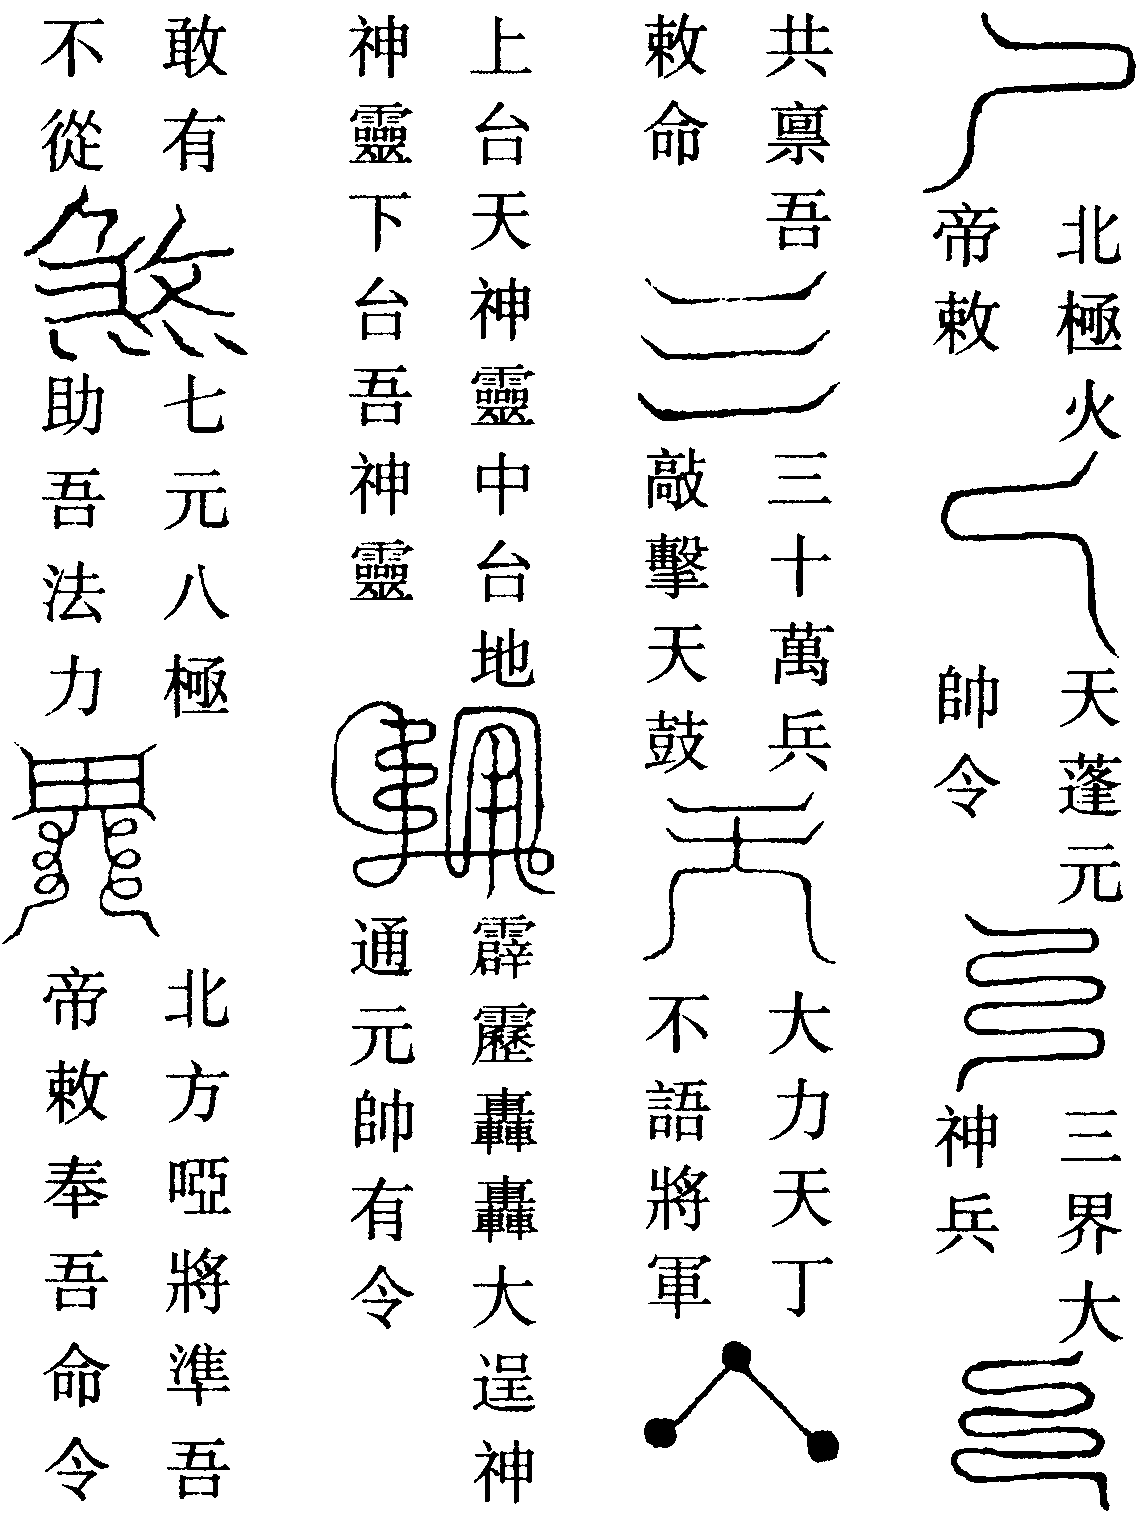 北極火
帝敕
天蓬元
帥令
三界大
神兵
共禀吾
敕命
三十萬兵
敲擊天鼓
大力天丁
不語將軍
上台天神靈中台地
神靈下台吾神靈
霹靂轟轟大逞神
通元帥有令
敢有
不從
七元八極
助吾法力
北方啞將準吾
帝敕奉吾命令